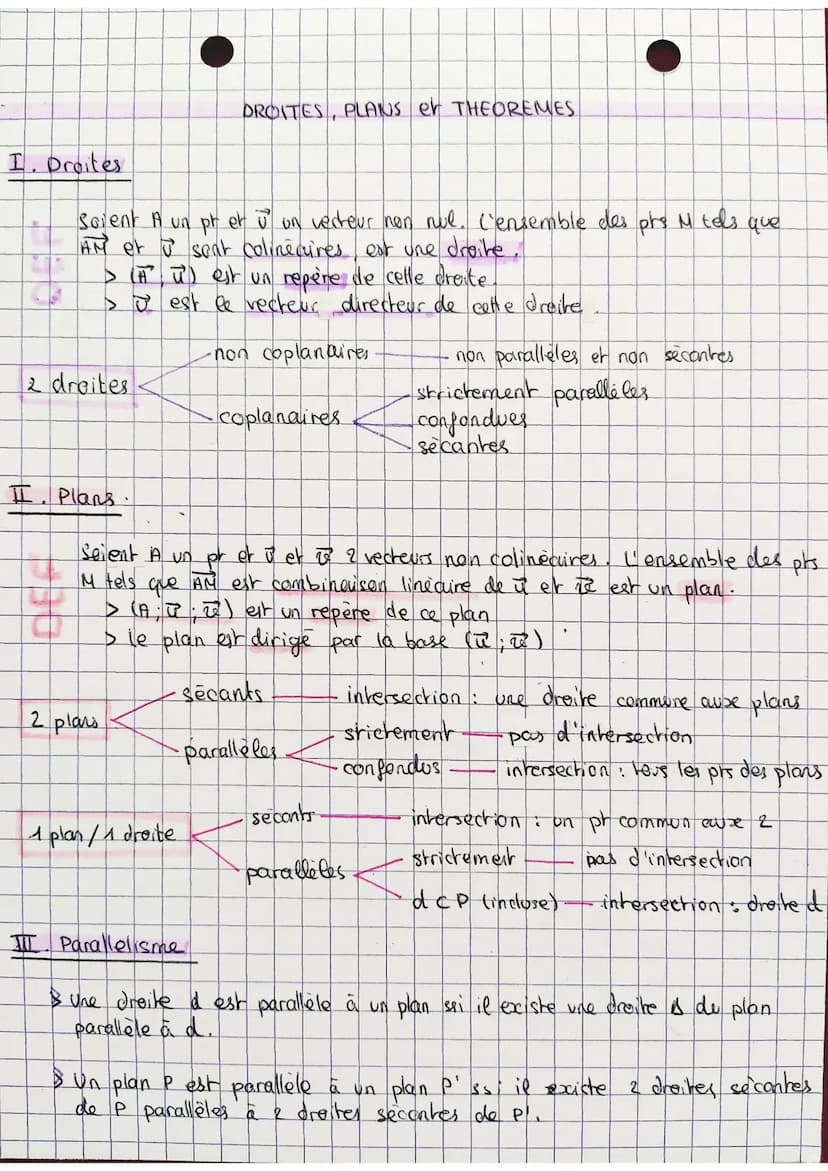 DROITES, PLANS et THEOREMES
I. Droites
DEF
Soient A un pt et u⃗ un vecteur non nul. L'ensemble des pts M tels que
AM⃗ et u⃗ sont colinéaires, est une droite.
> (A⃗, u⃗) est un repère de cette droite.
> u⃗ est le vecteur directeur de cette droite.
2 droites
non coplanaires — non parallèles et non sécantes
coplanaires
strictement parallèles
confondues
sécantes
II. Plans.
DEF
Soient A un pt et u⃗ et v⃗ 2 vecteurs non colinéaires. L'ensemble des pts
M tels que AM⃗ est combinaison linéaire de u⃗ et v⃗ est un plan.
> (A ; u⃗ ; v⃗) est un repère de ce plan
> le plan est dirigé par la base (u⃗ ; v⃗)
2 plans
sécants — intersection : une droite commune aux plans
parallèles
strictement — pas d'intersection
confondus — intersection : tous les pts des plans
1 plan / 1 droite
sécants — intersection : un pt commun aux 2
parallèles
strictement — pas d'intersection
d ⊂ P (incluse) — intersection : droite d
III. Parallelisme
> Une droite d est parallèle à un plan ssi il existe une droite Δ du plan
parallèle à d.
> Un plan P est parallèle à un plan P' ssi il existe 2 droites sécantes
de P parallèles à 2 droites sécantes de P'.